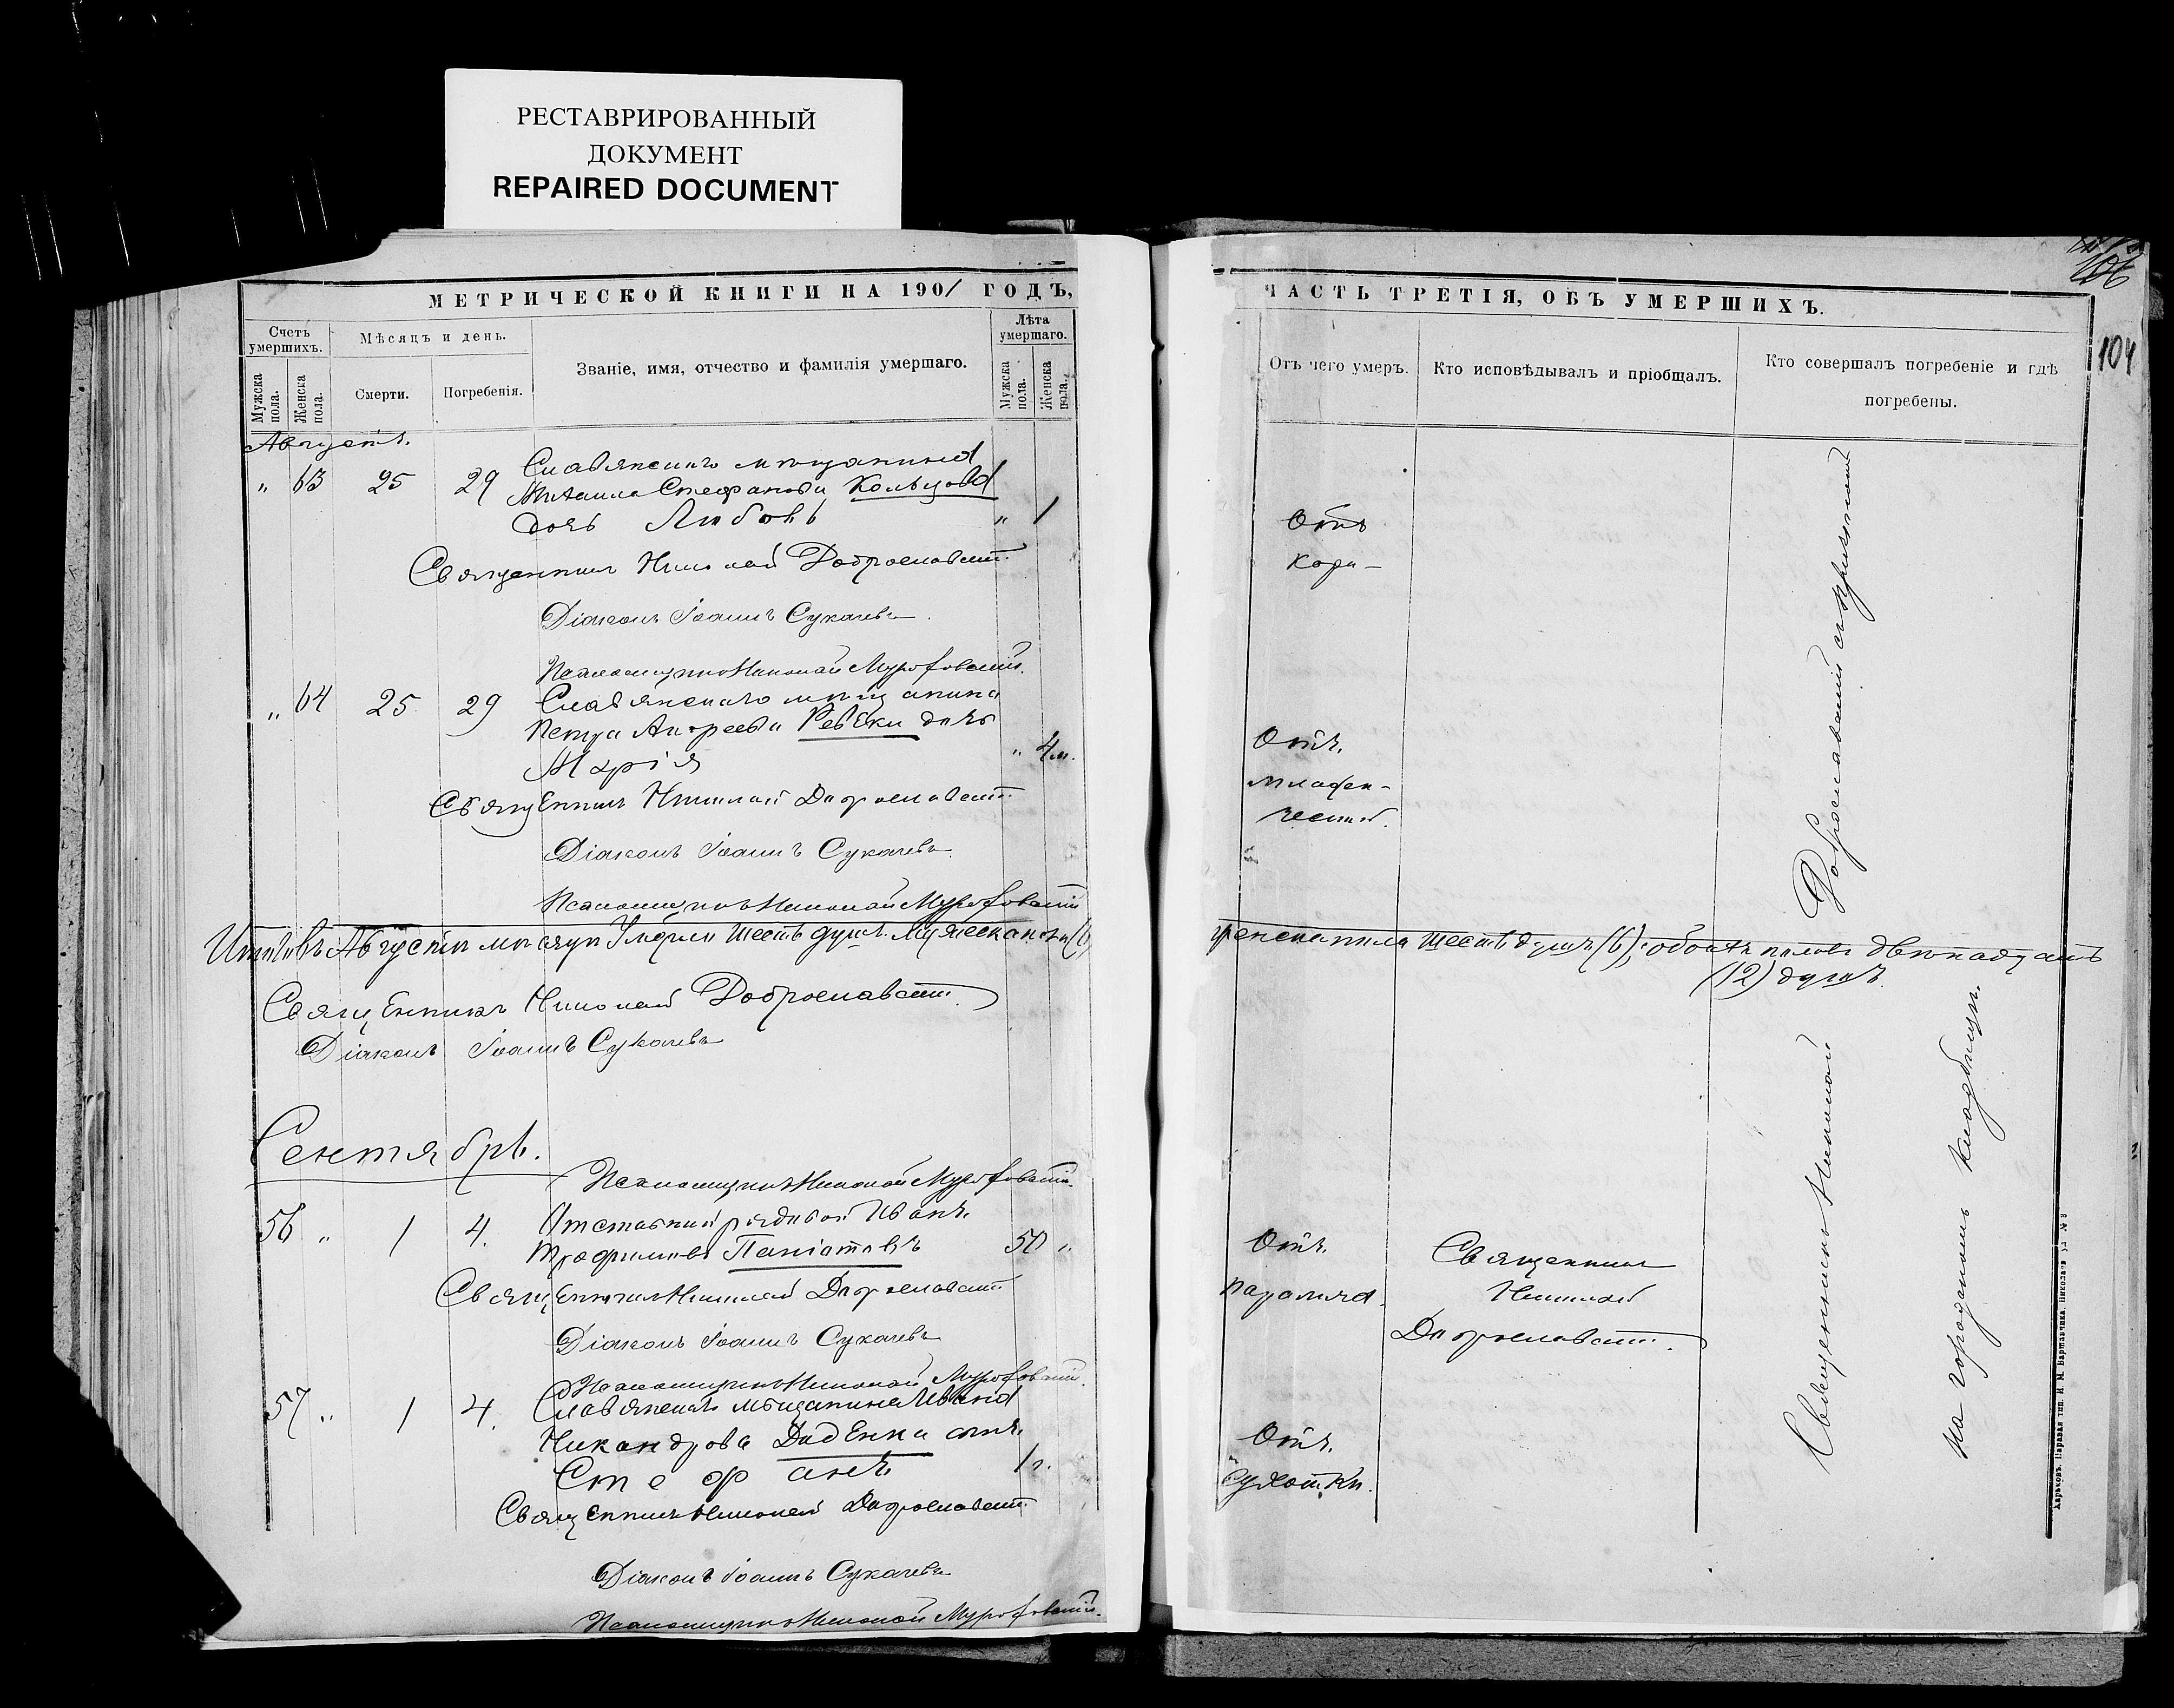 РЕСТАВРИРОВАННЫЙ
ДОКУМЕНТ
REPAIRED DOCUMENT
МЕТРИЧЕСКОЙ КНИГИ НА 1901 ГОДЪ,
Счетъ умершихъ.
Мужска пола.
Женска пола.
Мѣсяцъ и день.
Смерти.
Погребенія.
Званіе, имя, отчество и фамилія умершаго.
Лѣта умершаго.
Мужска пола.
Женска пола.
Августъ.
„ 63 25 29 Славянскаго мѣщанина
Михаила Стефанова Кольцова
дочь Любовь „ 1
Священникъ Николай Доброславскій
Діаконъ Іоаннъ Сукачевъ
Псаломщикъ Николай
„ 64 25 29 Славянскаго мѣщанина
Петра Андреева Ревѣки дочь
Марія „ 4 м.
Священникъ Николай Доброславскій
Діаконъ Іоаннъ Сукачевъ
Псаломщикъ Николай
Итого въ Августѣ мѣсяцѣ умерло шесть душъ мужеска пола (6)
Священникъ Николай Доброславскій
Діаконъ Іоаннъ Сукачевъ
Сентябрь.
Псаломщикъ Николай
56 „ 1 4. Отставной рядовой Иванъ
Трофимовъ 50 „
Священникъ Николай Доброславскій
Діаконъ Іоаннъ Сукачевъ
Псаломщикъ Николай
57 „ 1 4. Славянскаго мѣщанина Ивана
Никандрова Даденка сынъ
Стефанъ 1 г.
Священникъ Николай Доброславскій
Діаконъ Іоаннъ Сукачевъ
Псаломщикъ Николай
ЧАСТЬ ТРЕТІЯ, ОБЪ УМЕРШИХЪ.
106
104
Отъ чего умеръ.
Кто исповѣдывалъ и пріобщалъ.
Кто совершалъ погребеніе и гдѣ
погребены.
Отъ
кори
Отъ
младен-
ческой.
женска пола шесть душъ (6), обоихъ половъ двѣнадцать
(12) душъ.
Отъ
паралича.
Священникъ
Николай
Доброславскій
Отъ
сухотки.
Священникъ Николай Доброславскій съ причтомъ
на городскомъ кладбищѣ.